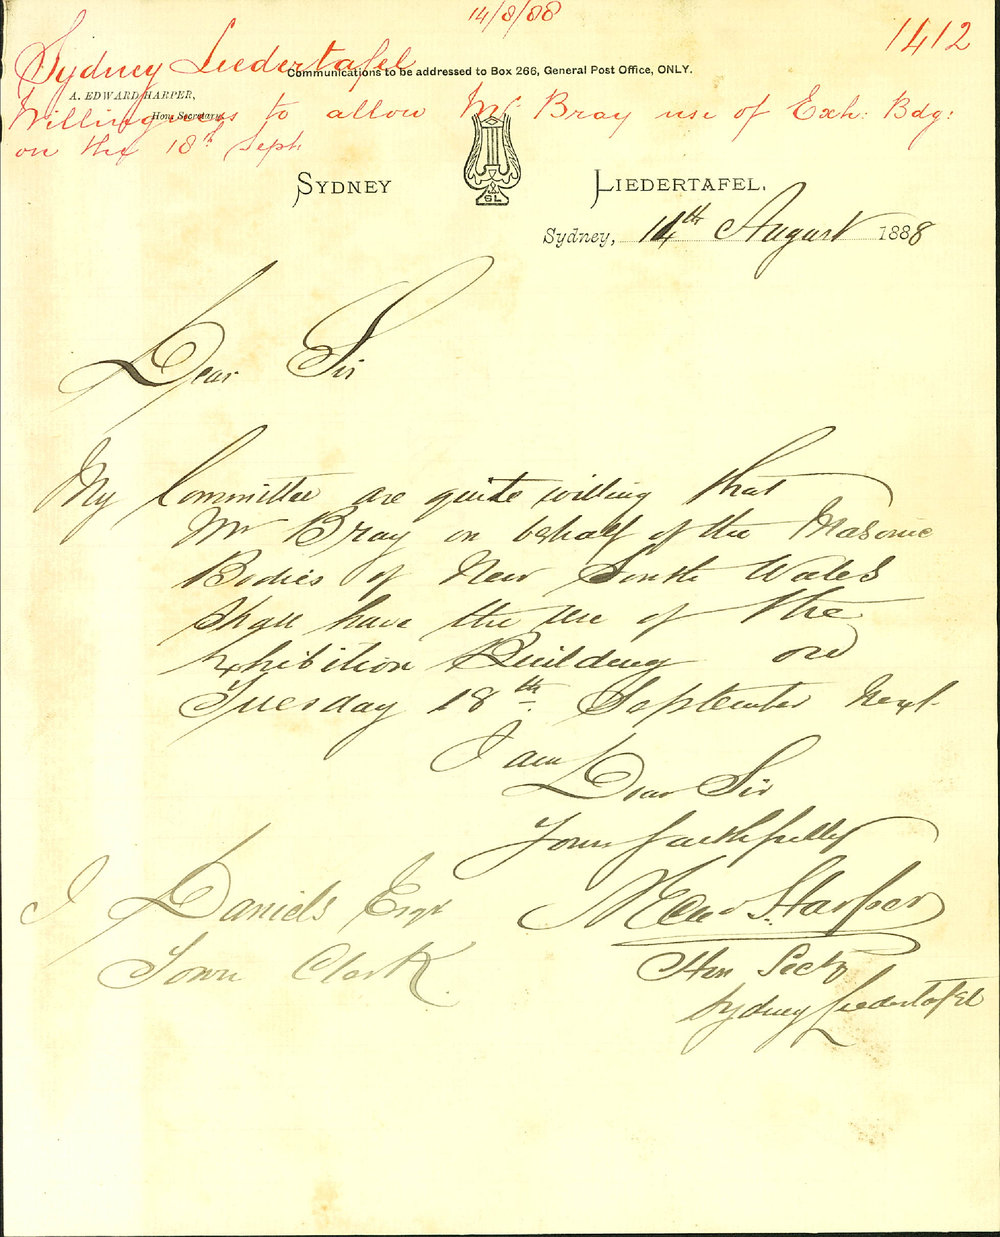 14/8/88
1412
Sydney Liedertafel
Communications to be addressed to Box 266, General Post Office, ONLY.
A. EDWARD HARPER,
Hon. Secretary.
Willingness to allow Mr Bray use of Exh: Bdg:
on the 18th Sept
SYDNEY LIEDERTAFEL.
SL
Sydney, 14th August 1888
Dear Sir
My Committee are quite willing that
Mr Bray on behalf of the Masonic
Bodies of New South Wales
shall have the use of the
Exhibition Building on
Tuesday 18th September next
I am Dear Sir
Yours faithfully
Harper
Hon Secty
Sydney Liedertafel
J Daniels Esqr
Town Clerk.